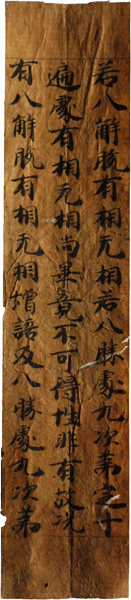 若八解脱有相无相若八勝處九次第定十
遍處有相无相尚畢竟不可得性非有故况
有八解脱有相无相增語及八勝處九次第